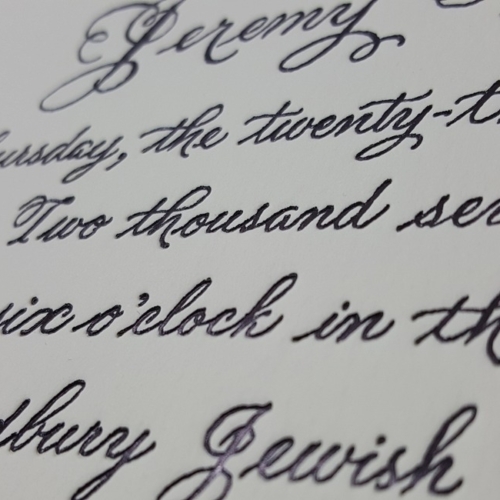 Jeremy
ursday, the twenty-th
Two thousand sev
six o'clock in th
dbury Jewish